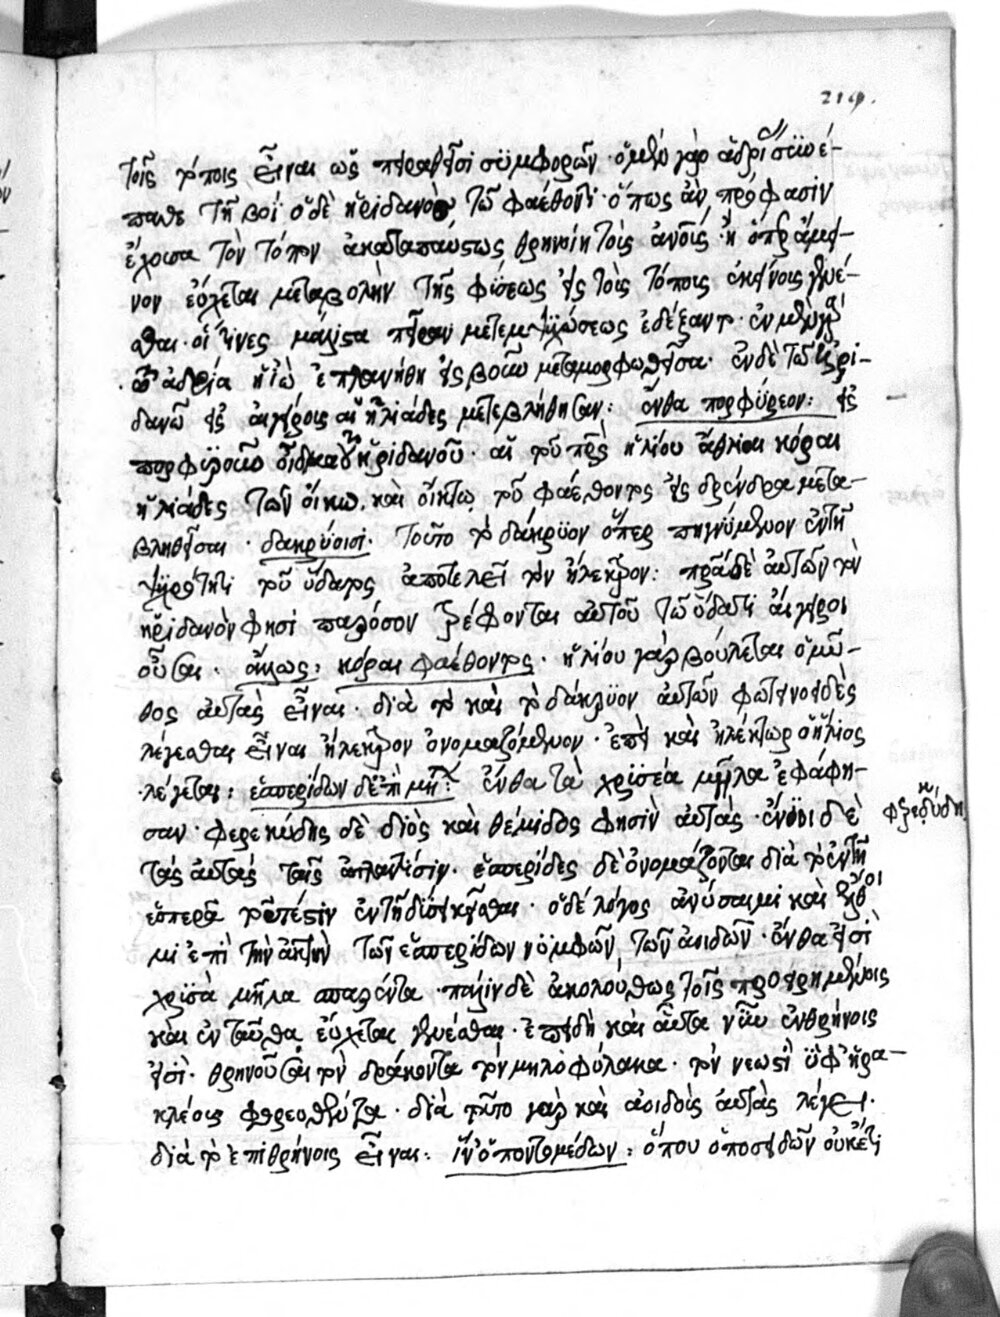 219.
τοῖς τόποις εἶναι ὡς πειραθεῖσι συμφορῶν· ὁ μὲν γὰρ ἀδρίας συνέ-
παθε τῇ βοΐ ὁ δὲ ἠριδανὸς τῷ φαέθοντι· ὅπως ἂν πρόφασιν
ἔχουσα τὸν τόπον ἀκαταπαύστως θρηνοίη τοῖς ἀνοῖς· ἢ ὅπερ
νον εὔχεται μεταβολὴν τῆς φύσεως εἰς τοὺς τόποις ἐκείνοις γενέ-
σθαι· οἵ τινες μάλιστα πεῖραν μετεμψυχώσεως ἐδέξαντο· ἐν μὲν γὰρ
τῷ ἀδρία ἡ ἰὼ ἐπλανήθη εἰς βοῦν μεταμορφωθεῖσα· ἐν δὲ τῷ ἠρι-
δανῷ εἰς αἰγείροις αἱ ἡλιάδες μετεβλήθησαν: ἔνθα πορφύρεον: εἰς
πορφυροῦν οἶδμα τοῦ ἠριδανοῦ· αἱ τοῦ πρς ἡλίου ἄθλιαι κόραι
ἡλιάδες τῶν οἴκτῳ. καὶ οἴκτῳ τοῦ φαέθοντος εἰς δένδρα μετα-
βληθεῖσαι· δακρύοισι· τοῦτο τὸ δάκρυον ὅπερ πηγνύμενον ἐν τῇ
ψυχρότητι τοῦ ὕδατος ἀποτελεῖ τὸν ἤλεκτρον: αὐτῶν τὸν
ἠριδανόν φησι παρόσον τρέφονται αὐτοῦ τῷ ὕδατι αἴγειροι
οὖσαι· ἄλλως: κόραι φαέθοντος· ἡλίου γὰρ βούλεται ὁ μῦ-
θος αὐτὰς εἶναι· διὰ τὸ καὶ τὸ δάκρυον αὐτῶν φωτεινοειδὲς
λέγεσθαι εἶναι ἤλεκτρον ὀνομαζόμενον· ἐπεὶ καὶ ἠλέκτωρ ὁ ἥλιος
λέγεται: ἑσπερίδων δ᾽ ἐπὶ μη: ἔνθα τὰ χρύσεα μῆλα ἐφάφη-
σαν· φερεκύδης δὲ διὸς καὶ θέμιδος φησὶν αὐτάς· ἔνιοι δὲ
τὰς αὐτὰς ταῖς ἀτλαντίσιν· ἑσπερίδες δὲ ὀνομάζονται διὰ τὸ ἐν τῇ
ἑσπέρᾳ τουτέστιν ἐν τῇ δύσει κεῖσθαι· ὁ δὲ λόγος ἀνύσαιμι καὶ ἔλθοι
μι ἐπὶ τὴν ἀκτὴν τῶν ἑσπερίδων νυμφῶν, τῶν ἀοιδῶν· ἔνθα εἰσὶ
χρυσᾶ μῆλα σπαρέντα· πάλιν δὲ ἀκολούθως τοῖς προειρημένοις
καὶ ἐνταῦθα εὔχεται γενέσθαι· ἐπειδὴ καὶ αὗται νῦν ἐν θρήνοις
εἰσὶ· θρηνοῦσαι τὸν δράκοντα τὸν μηλοφύλακα· τὸν νεωστὶ ὑφ᾽ ἡρα-
κλέους φθαρέντα· διὰ τοῦτο γὰρ καὶ ἀοιδοὺς αὐτὰς λέγει·
διὰ τὸ ἐπὶ θρήνοις εἶναι: ἵν᾽ ὁ ποντομέδων: ὅπου ὁ ποσειδῶν οὐκέτι